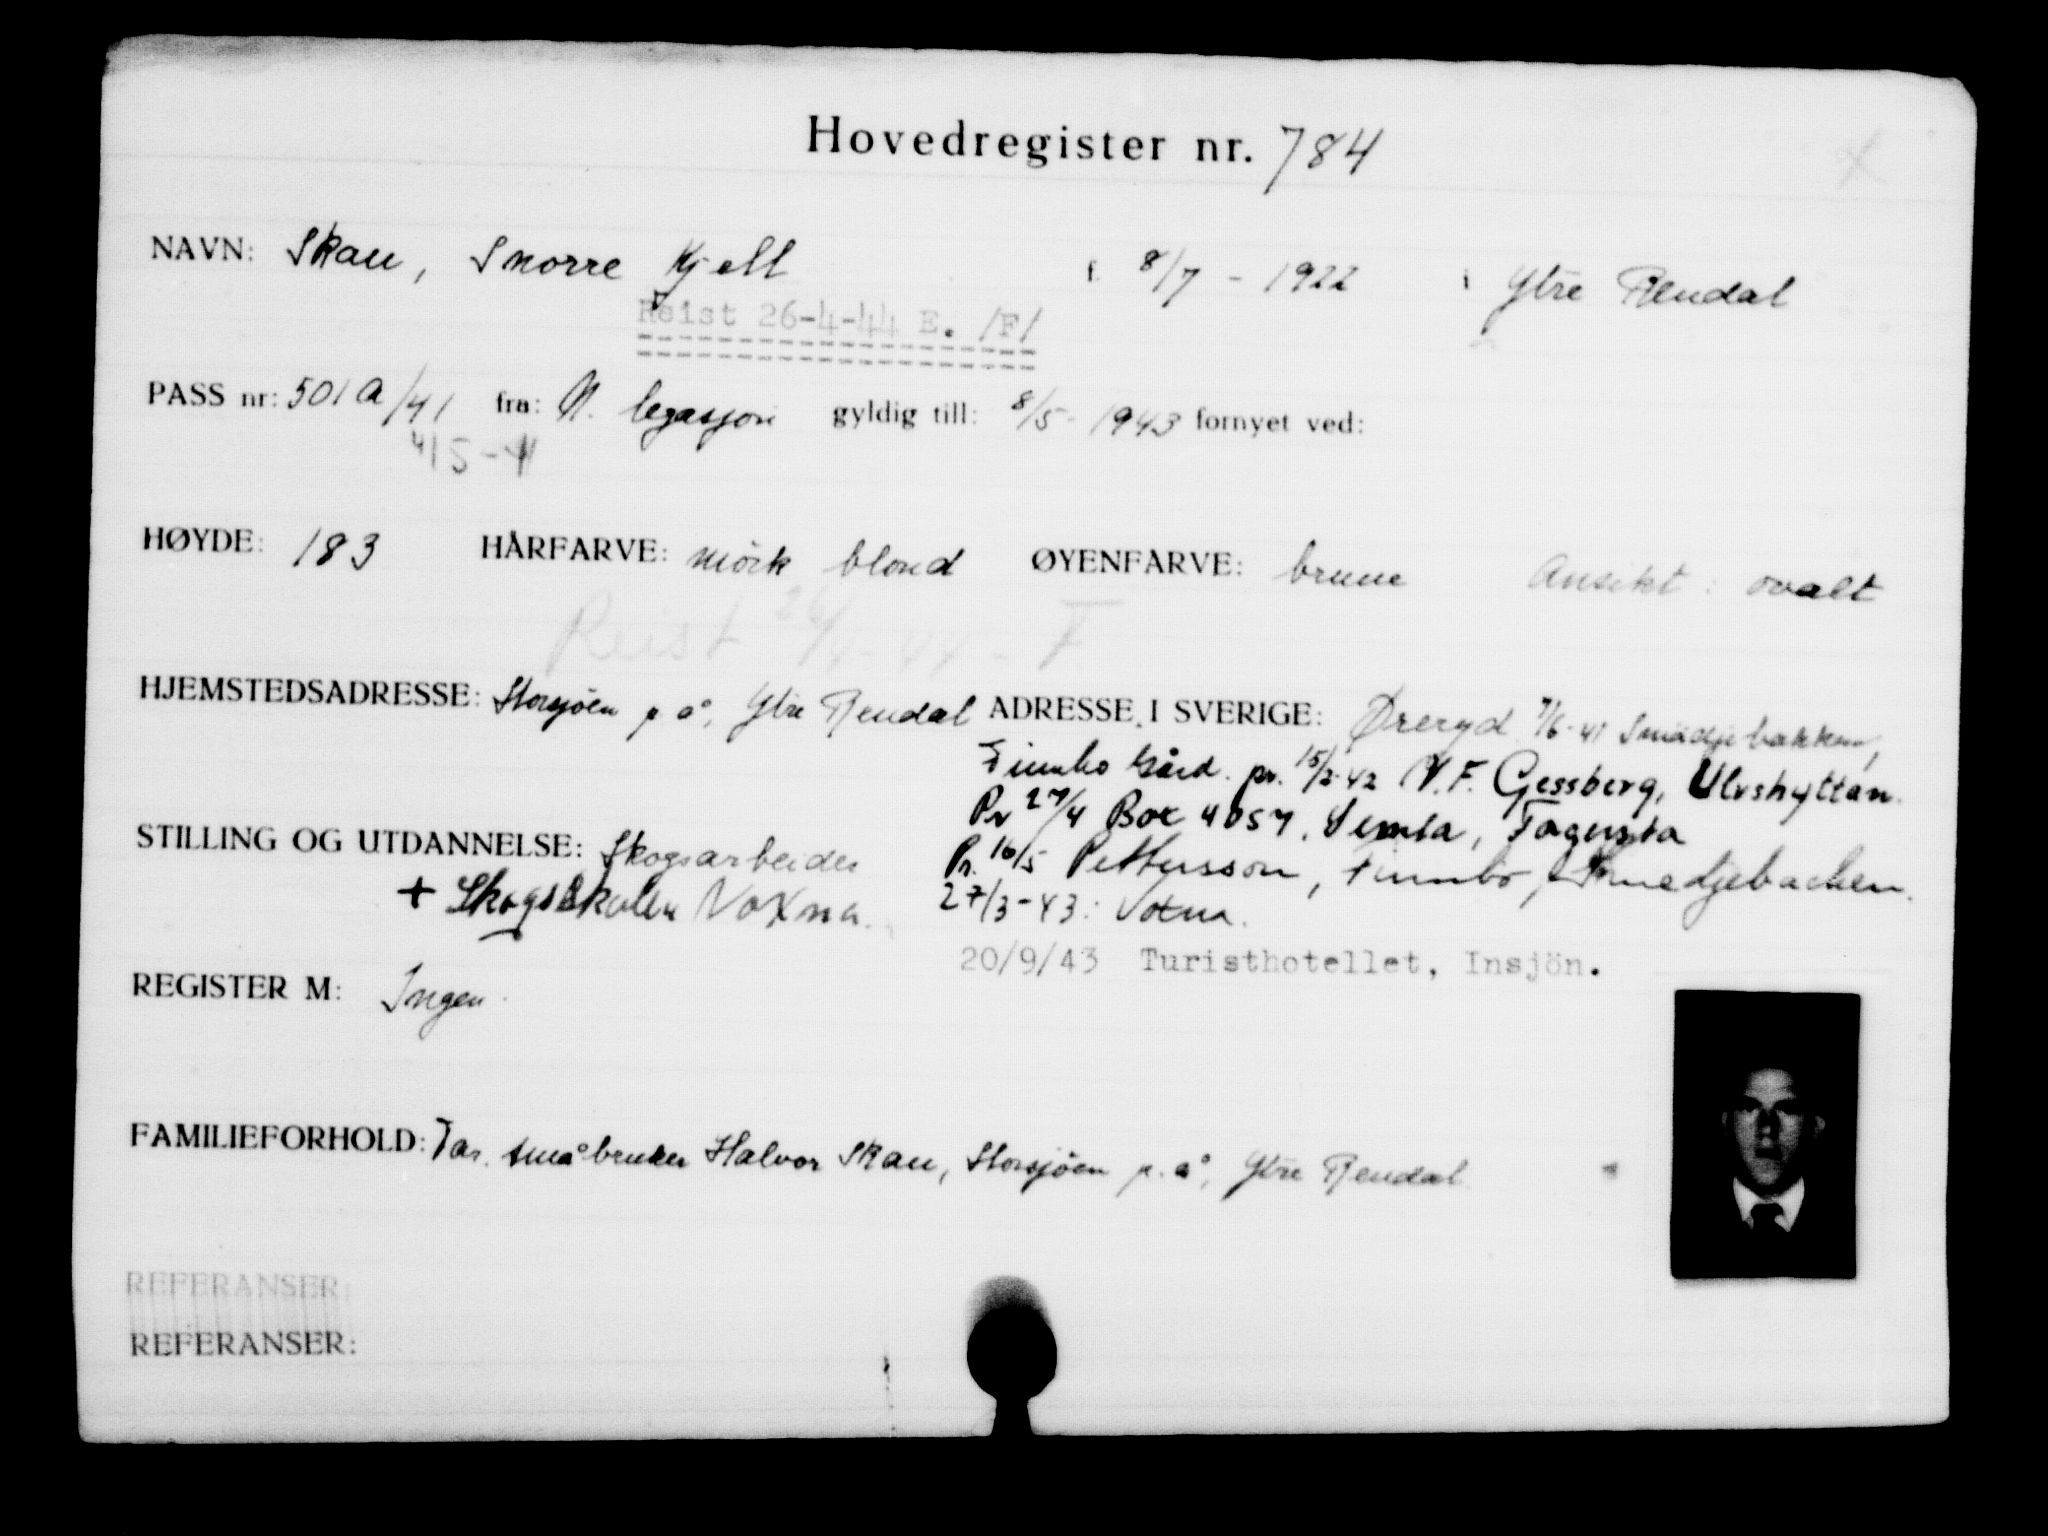 Hovedregister nr. 784
NAVN: Skau, Snorre Kjell f. 8/7 - 1922 i Ytre Rendal
Reist 26-4-44 E. /F/
PASS nr: 501a/41 fra: N. legasjon gyldig till: 8/5- 1943 fornyet ved:
4/5-41
HØYDE: 183 HÅRFARVE: mörk blond ØYENFARVE: brune Ansikt: ovalt
Reist 26/4-44 - F
HJEMSTEDSADRESSE: Storsjöen p.å, Ytre Rendal ADRESSE I SVERIGE: Øreryd 7/6-41 Smidjebakken,
Finnbo Gård. pr. 15/2-42 V.F. Gessberg, Ulvshyttan.
Pr 27/4 Box 4057, Semla, Fagersta
STILLING OG UTDANNELSE: Skogsarbeider Pr. 16/5 Pettersson, Finnbo, Smedjebacken.
+ Skogskolen Voxna. 27/3-43: Voxna.
20/9/43 Turisthotellet, Insjön.
REGISTER M: Ingen
FAMILIEFORHOLD: Far. småbruker Halvor Skau, Storsjöen p.å, Ytre Rendal
REFERANSER:
REFERANSER: